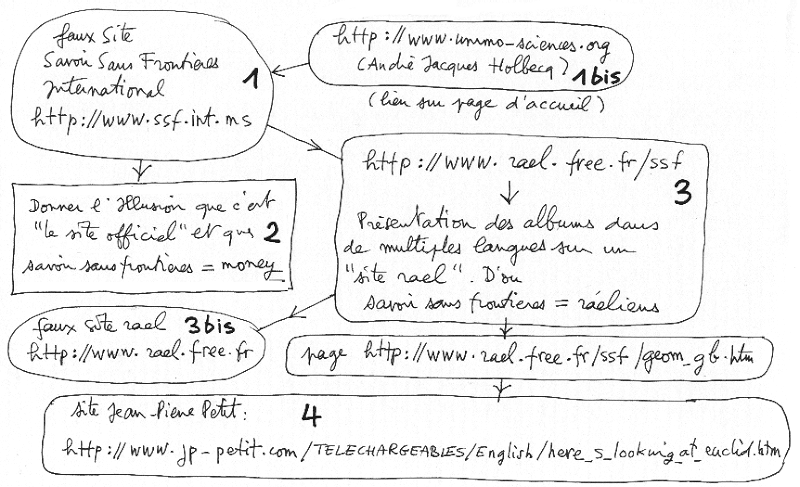 faux site
Savoir Sans Frontières
International
http://www.ssf.int.ms
1
http://www.ummo-sciences.org
(André Jacques Holbecq)
1bis
(lien sur page d'accueil)
Donner l'illusion que c'est
"le site officiel" et que
savoir sans frontières = money
2
http://www.rael.free.fr/ssf
3
Présentation des albums dans
de multiples langues sur un
"site rael". D'ou
savoir sans frontieres = raéliens
faux site rael 3bis
http://www.rael.free.fr
page http://www.rael.free.fr/ssf/geom_gb.htm
site Jean-Pierre Petit: 4
http://www.jp-petit.com/TELECHARGEABLES/English/here_s_looking_at_euclid.htm